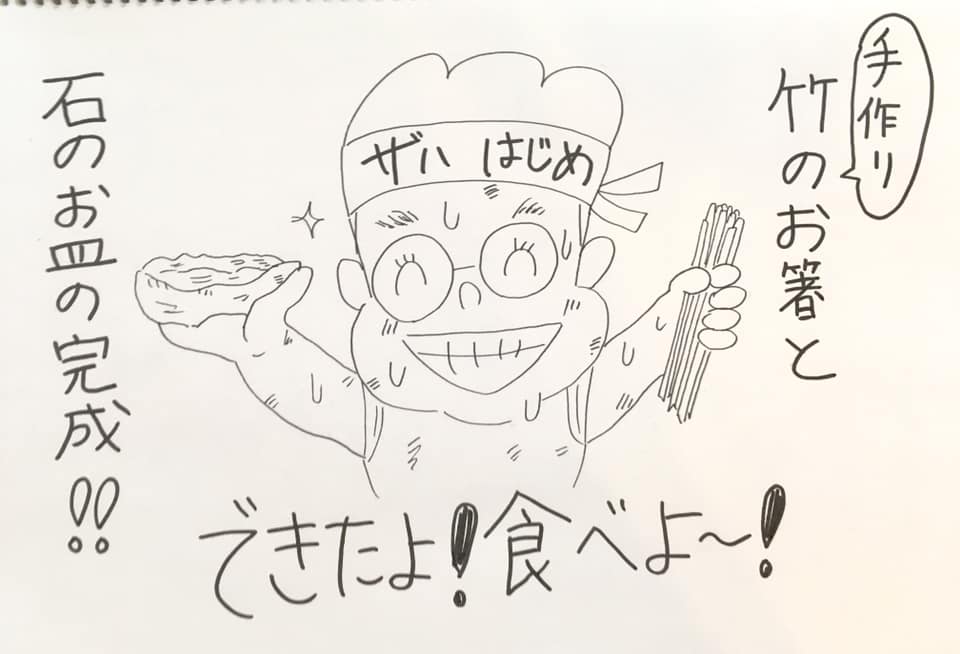 手作り
竹のお箸と
石のお皿の完成!!
ザハ はじめ
できたよ!食べよ〜!